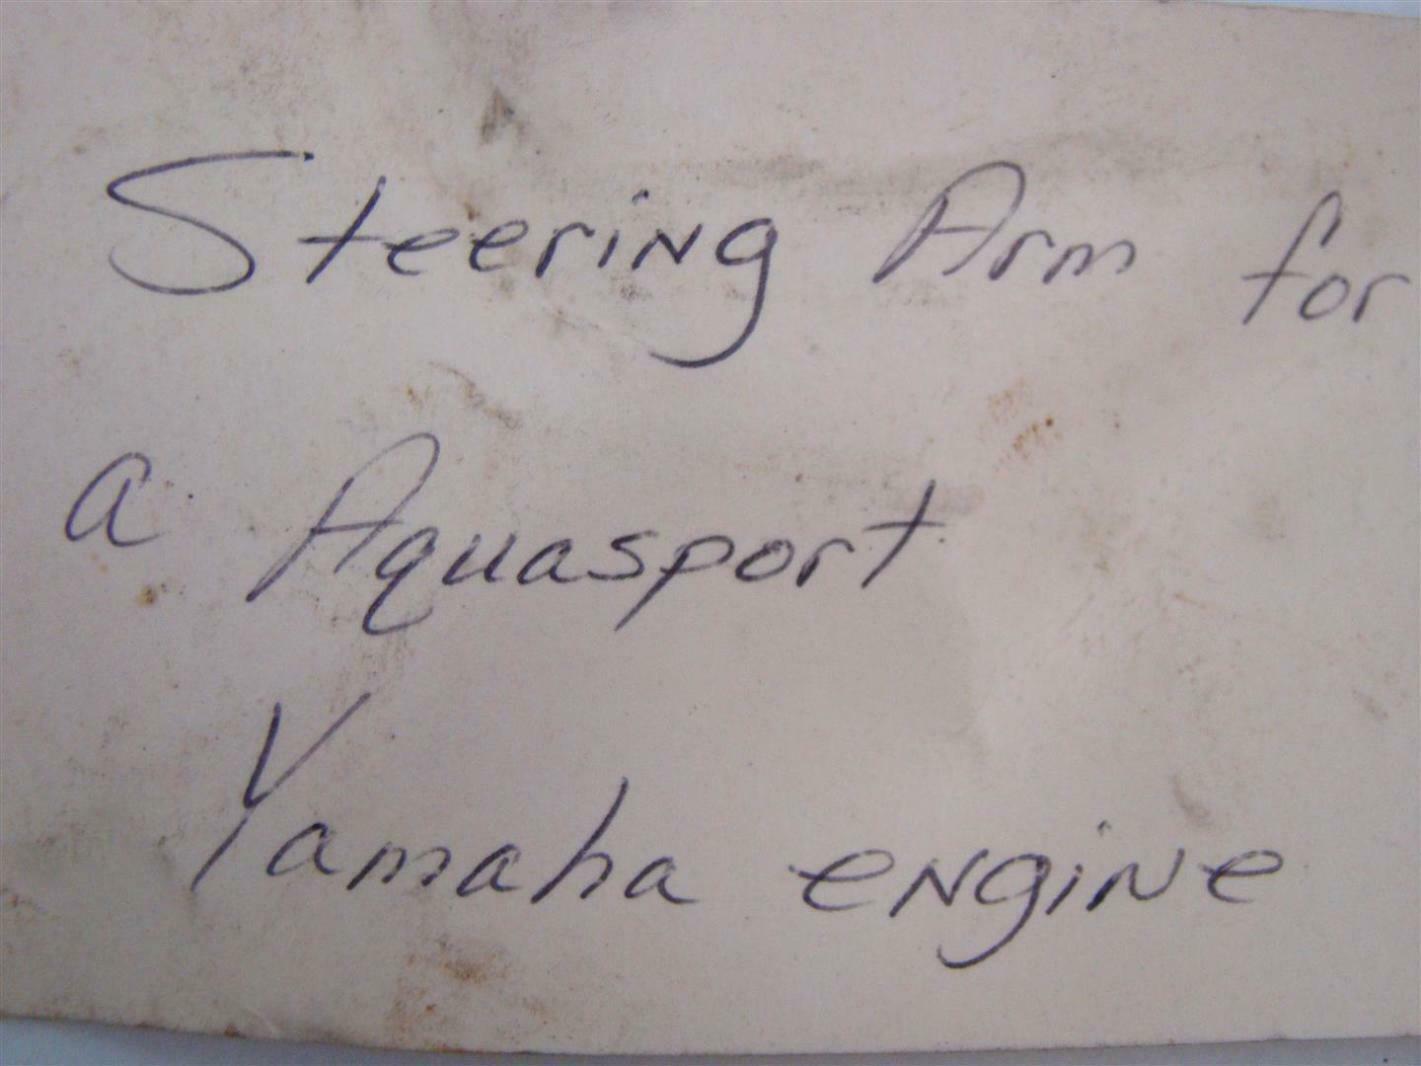 Steering Arm for
a Aquasport
Yamaha engine